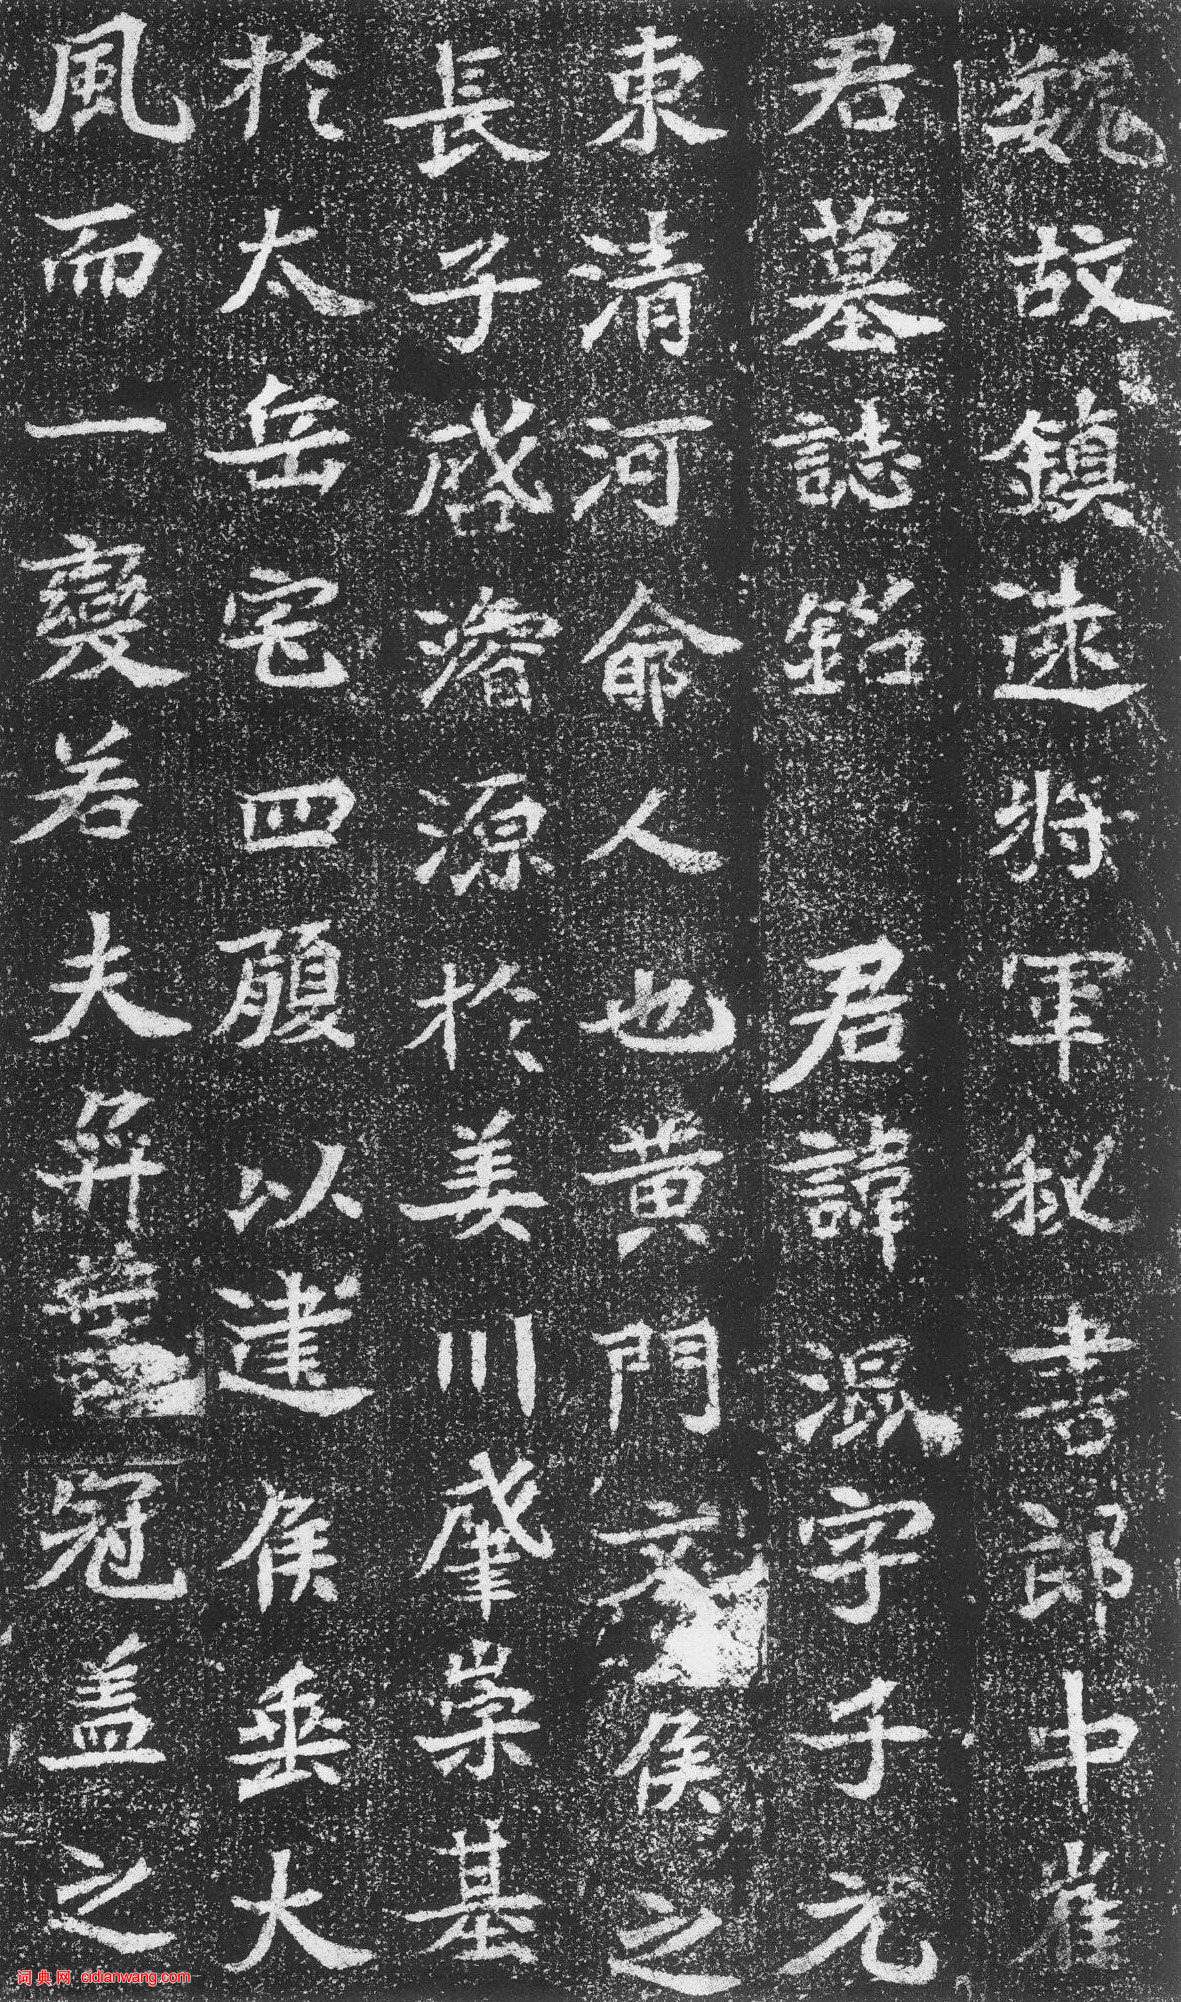 魏故鎮遠將軍秘書郎中崔
君墓誌銘 君諱混字子元
東清河俞人也黃門文侯之
長子啓濬源於姜川肇崇基
於太岳宅四履以建侯垂大
風而一變若夫弈葉冠盖之
词典网 cidianwang.com